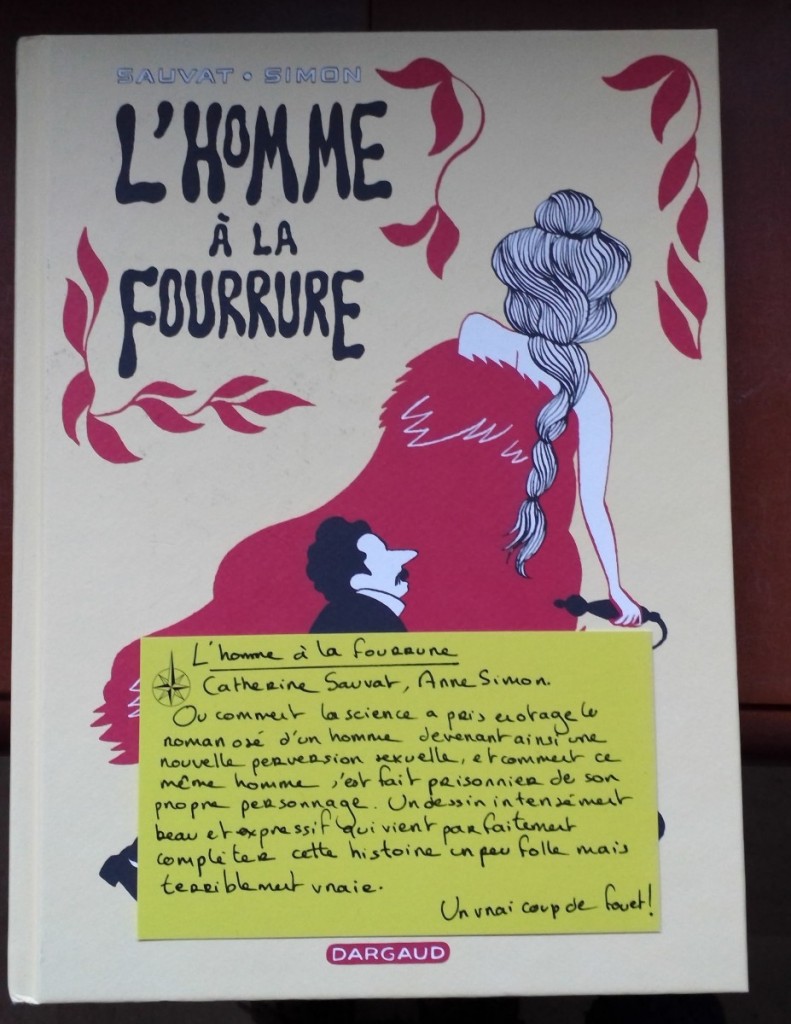 SAUVAT • SIMON
L'HOMME
À LA
FOURRURE
L'homme à la fourrure
Catherine Sauvat, Anne Simon.
Ou comment la science a pris en otage le
roman osé d'un homme devenant ainsi une
nouvelle perversion sexuelle, et comment ce
même homme s'est fait prisonnier de son
propre personnage. Un dessin intensément
beau et expressif qui vient parfaitement
compléter cette histoire un peu folle mais
terriblement vraie.
Un vrai coup de fouet!
DARGAUD